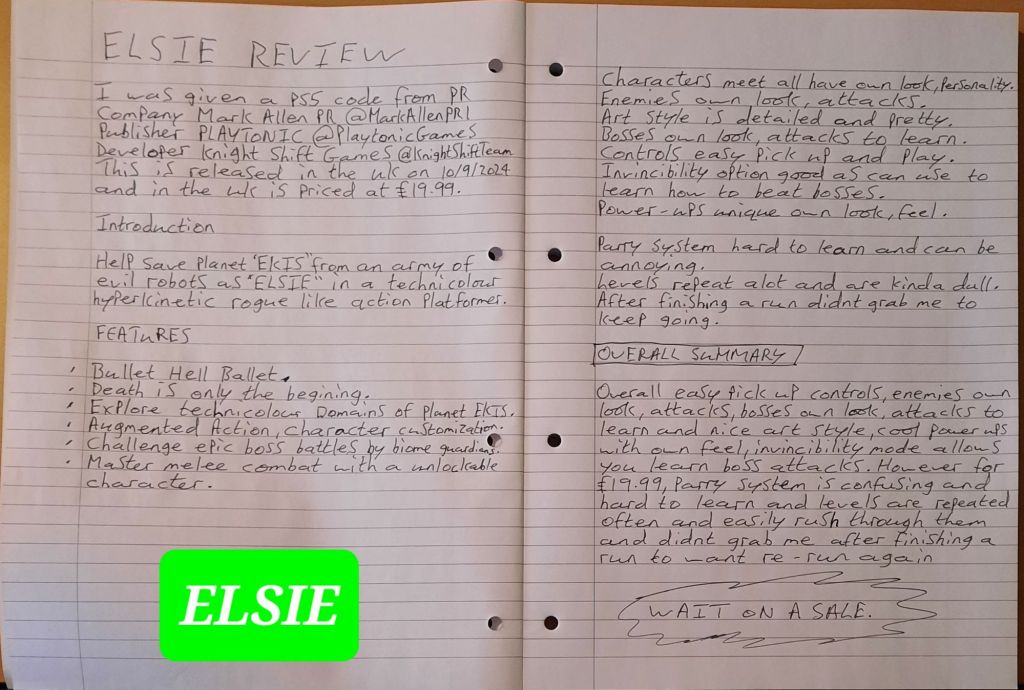 ELSIE REVIEW
I was given a PS5 code from PR
Company Mark Allen PR @MarkAllenPR1
Publisher PLAYTONIC @PlaytonicGames
Developer Knight Shift Games @KnightShiftTeam
This is released in the uk on 10/9/2024
and in the uk is priced at £19.99.
Introduction
Help save Planet "EKIS" from an army of
evil robots as "ELSIE" in a technicolour
hyperkinetic rogue like action Platformer.
FEATURES
• Bullet Hell Ballet.
• Death is only the begining.
• Explore technicolour Domains of Planet EKIS.
• Augmented Action, Character customization.
• Challenge epic boss battles by biome guardians.
• Master melee combat with a unlockable
character.
ELSIE
Characters meet all have own look, personality.
Enemies own look, attacks.
Art Style is detailed and pretty.
Bosses own look, attacks to learn.
Controls easy pick up and play.
Invincibility option good as can use to
learn how to beat bosses.
Power-ups unique own look, feel.
Parry system hard to learn and can be
annoying.
Levels repeat alot and are kinda dull.
After finishing a run didnt grab me to
keep going.
OVERALL SUMMARY
Overall easy pick up controls, enemies own
look, attacks, bosses own look, attacks to
learn and nice art style, cool power ups
with own feel, invincibility mode allows
you learn boss attacks. However for
£19.99, Parry system is confusing and
hard to learn and levels are repeated
often and easily rush through them
and didnt grab me after finishing a
run to want re-run again
WAIT ON A SALE.